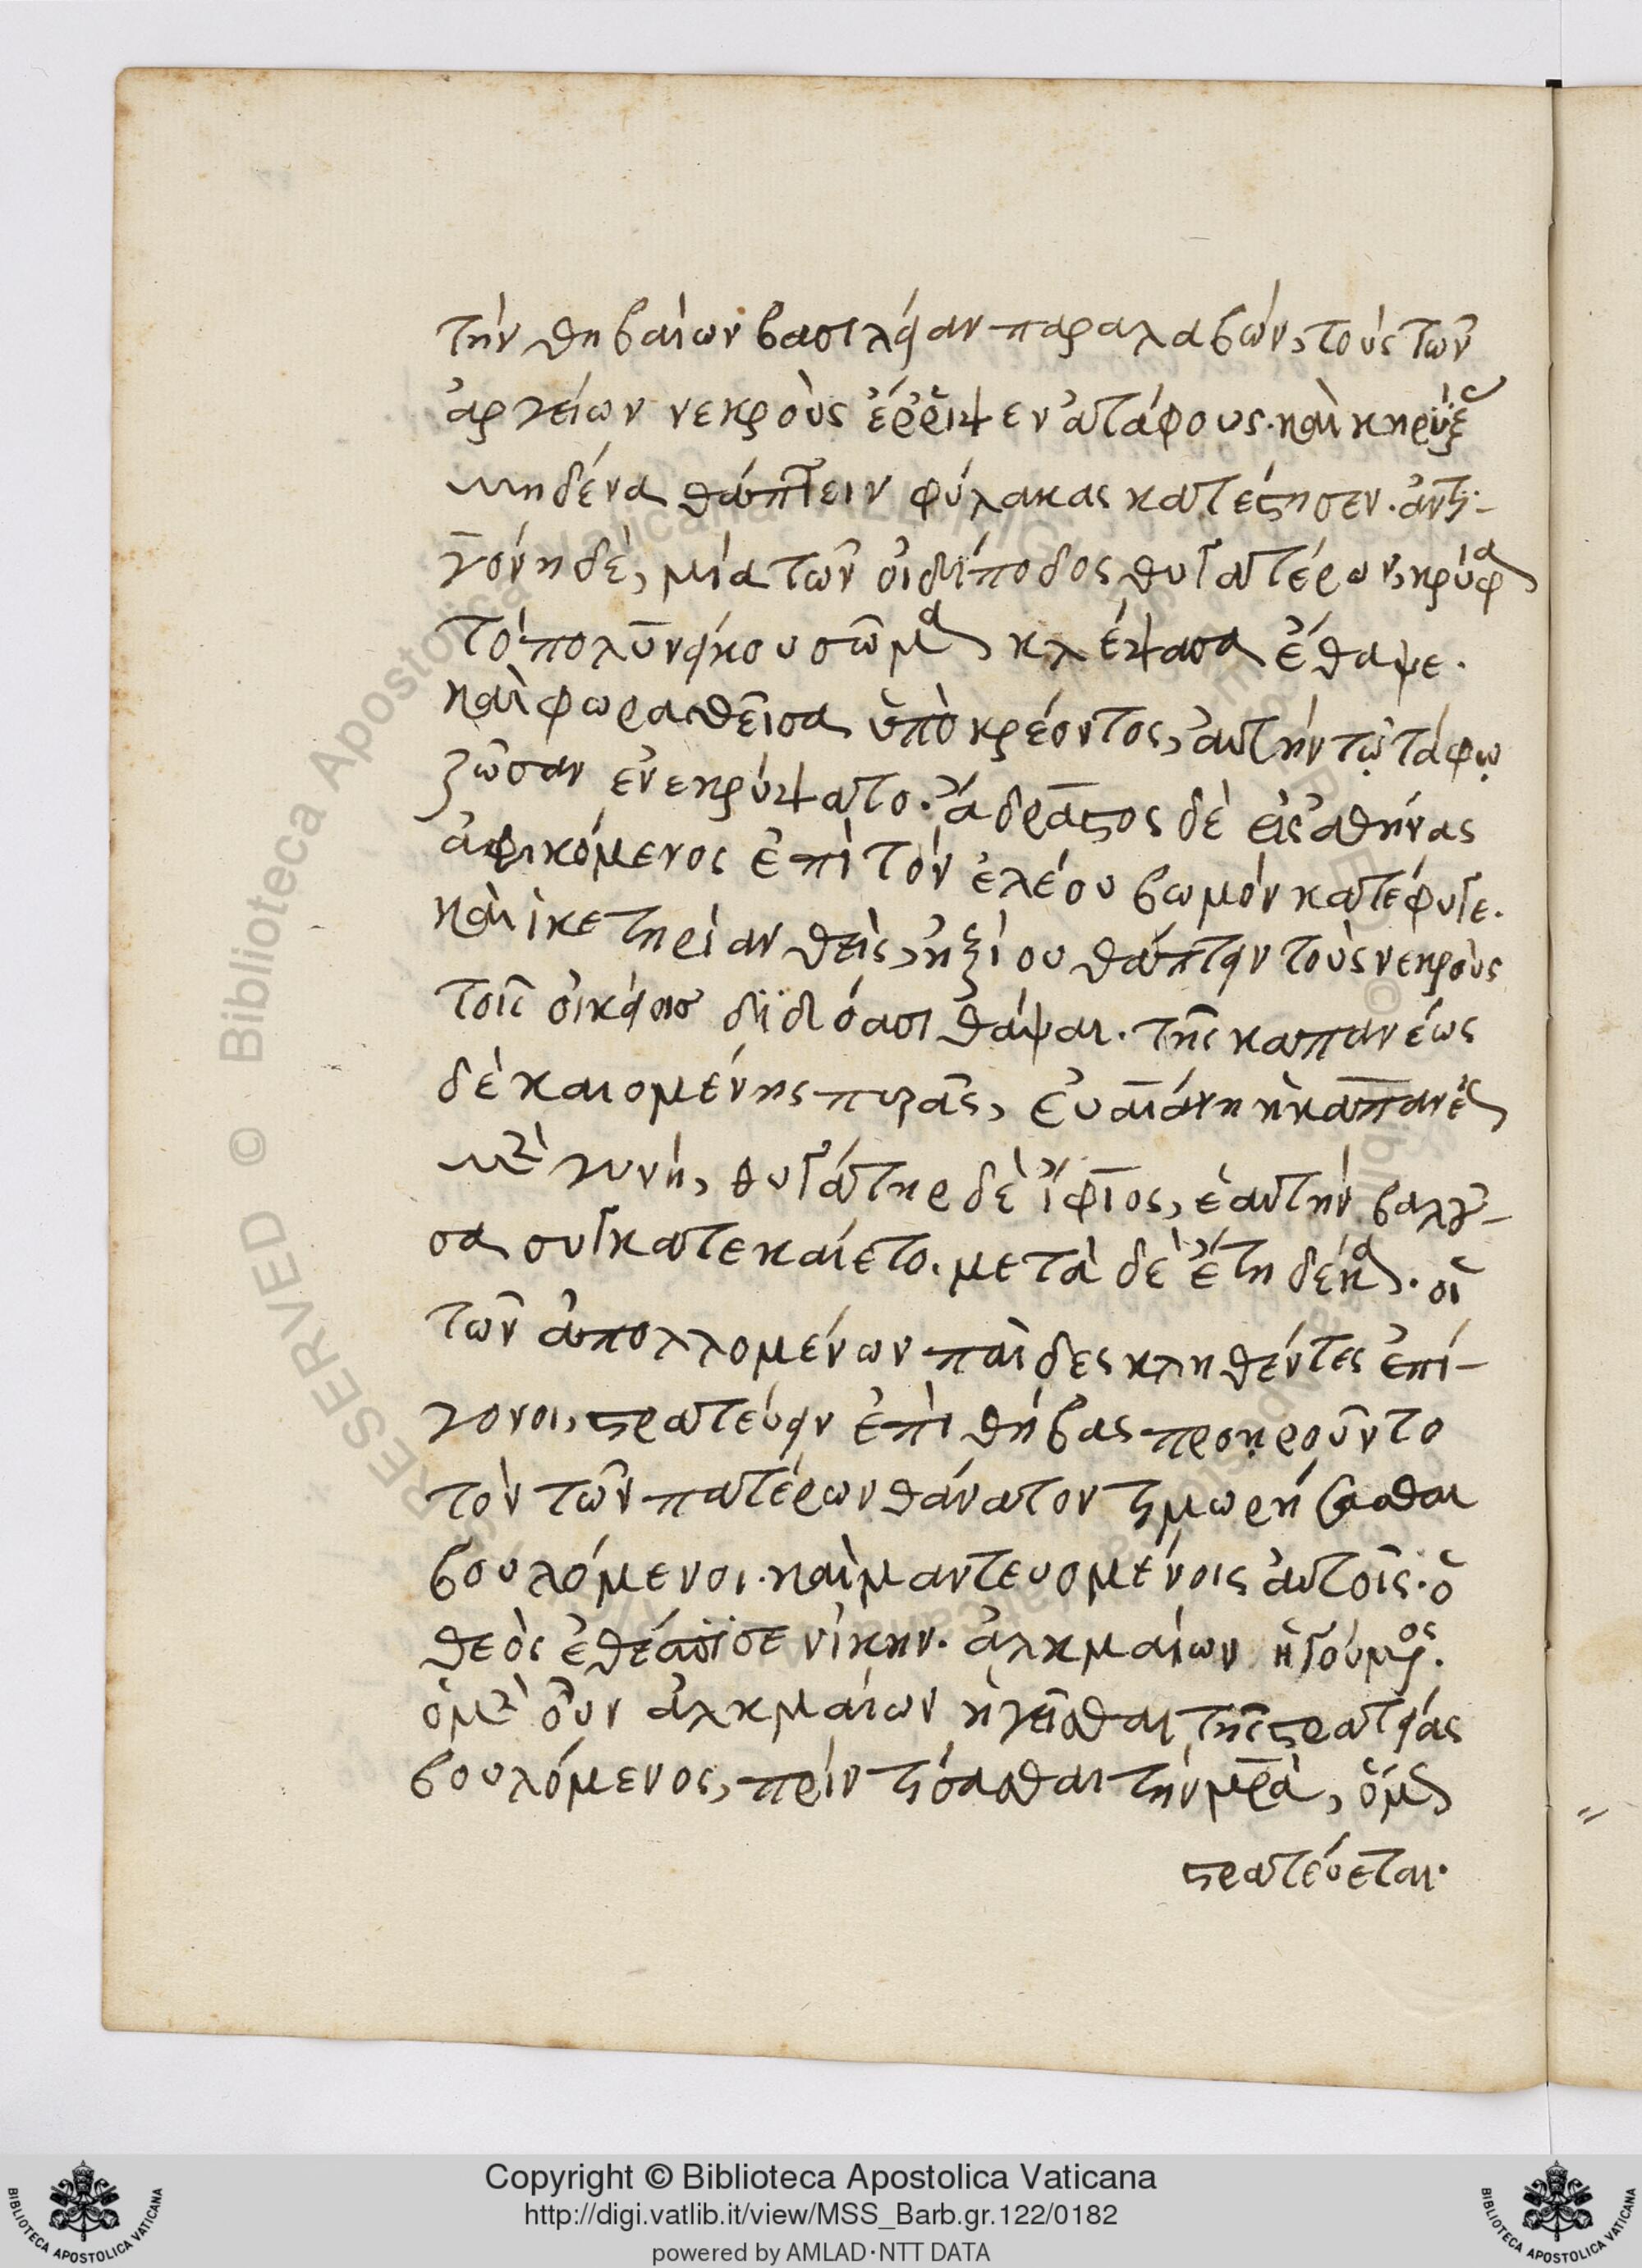 τὴν θηβαίων βασιλείαν παραλαβών, τοὺς τῶν
ἀργείων νεκροὺς ἔῤῥιψεν ἀτάφους. καὶ κηρύξ(ας)
μηδένα θάπτειν φύλακας κατέστησεν. ἀντι-
γόνη δὲ, μία τῶν οἰδίποδος θυγατέρων, κρύφα
τὸ πολυνείκου σῶμα κλέψασα ἔθαψε.
καὶ φωραθεῖσα ὑπὸ κρέοντος, αὐτὴν τῷ τάφῳ
ζῶσαν ἐνεκρύψατο. ἄδραστος δὲ εἰς ἀθήνας
ἀφικόμενος ἐπὶ τὸν ἐλέου βωμὸν κατέφυγε.
καὶ ἱκετηρίαν θεὶς, ἠξίου θάπτειν τοὺς νεκροὺς
τοῖς οἰκείοις διδόασι θάψαι. τῆς καπανέως
δὲ καιομένης πυρᾶς, εὐάνη ἡ καπανέως
μὲν γυνὴ, θυγάτηρ δὲ ἴφιος, ἑαυτὴν βαλοῦ-
σα συγκατεκαίετο. μετὰ δὲ ἔτη δέκα. οἱ
τῶν ἀπολλομένων παῖδες κληθέντες ἐπί-
γονοι, στρατεύειν ἐπὶ θήβας προῃροῦντο
τὸν τῶν πατέρων θάνατον τιμωρήσασθαι
βουλόμενοι. καὶ μαντευομένοις αὐτοῖς. ὁ
θεὸς ἐθέσπισε νίκην. ἀλκμαίων ἡγούμενος.
ὁ μὲν οὖν ἀλκμαίων ἡγεῖσθαι τῆς στρατείας
βουλόμενος, πρὶν τίσασθαι τὴν μρα, ὅμως
στρατεύεται.
Copyright © Biblioteca Apostolica Vaticana
http://digi.vatlib.it/view/MSS_Barb.gr.122/0182
powered by AMLAD·NTT DATA